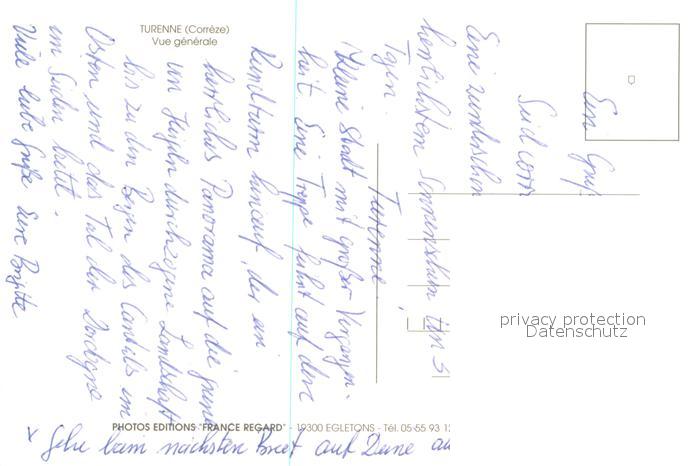 TURENNE (Corrèze)
Vue générale
Ein Gruß
Eine
herrlichstem Sonnenschein
Tagen.
Turenne
Kleine Stadt mit großer Vergangen-
heit. Eine Treppe führt auf den
Rundturm hinauf, der ein
herrliches Panorama auf die grüne
von Hügeln durchzogene Landschaft
bis zu den Bergen des Cantals im
Osten und das Tal der Dordogne
im Süden bietet.
Viele liebe Grüße Deine Brigitte
x Gehe beim nächsten Brief auf Deine
PHOTOS EDITIONS "FRANCE REGARD" - 19300 EGLETONS - Tél. 05-55 93 12
privacy protection
Datenschutz